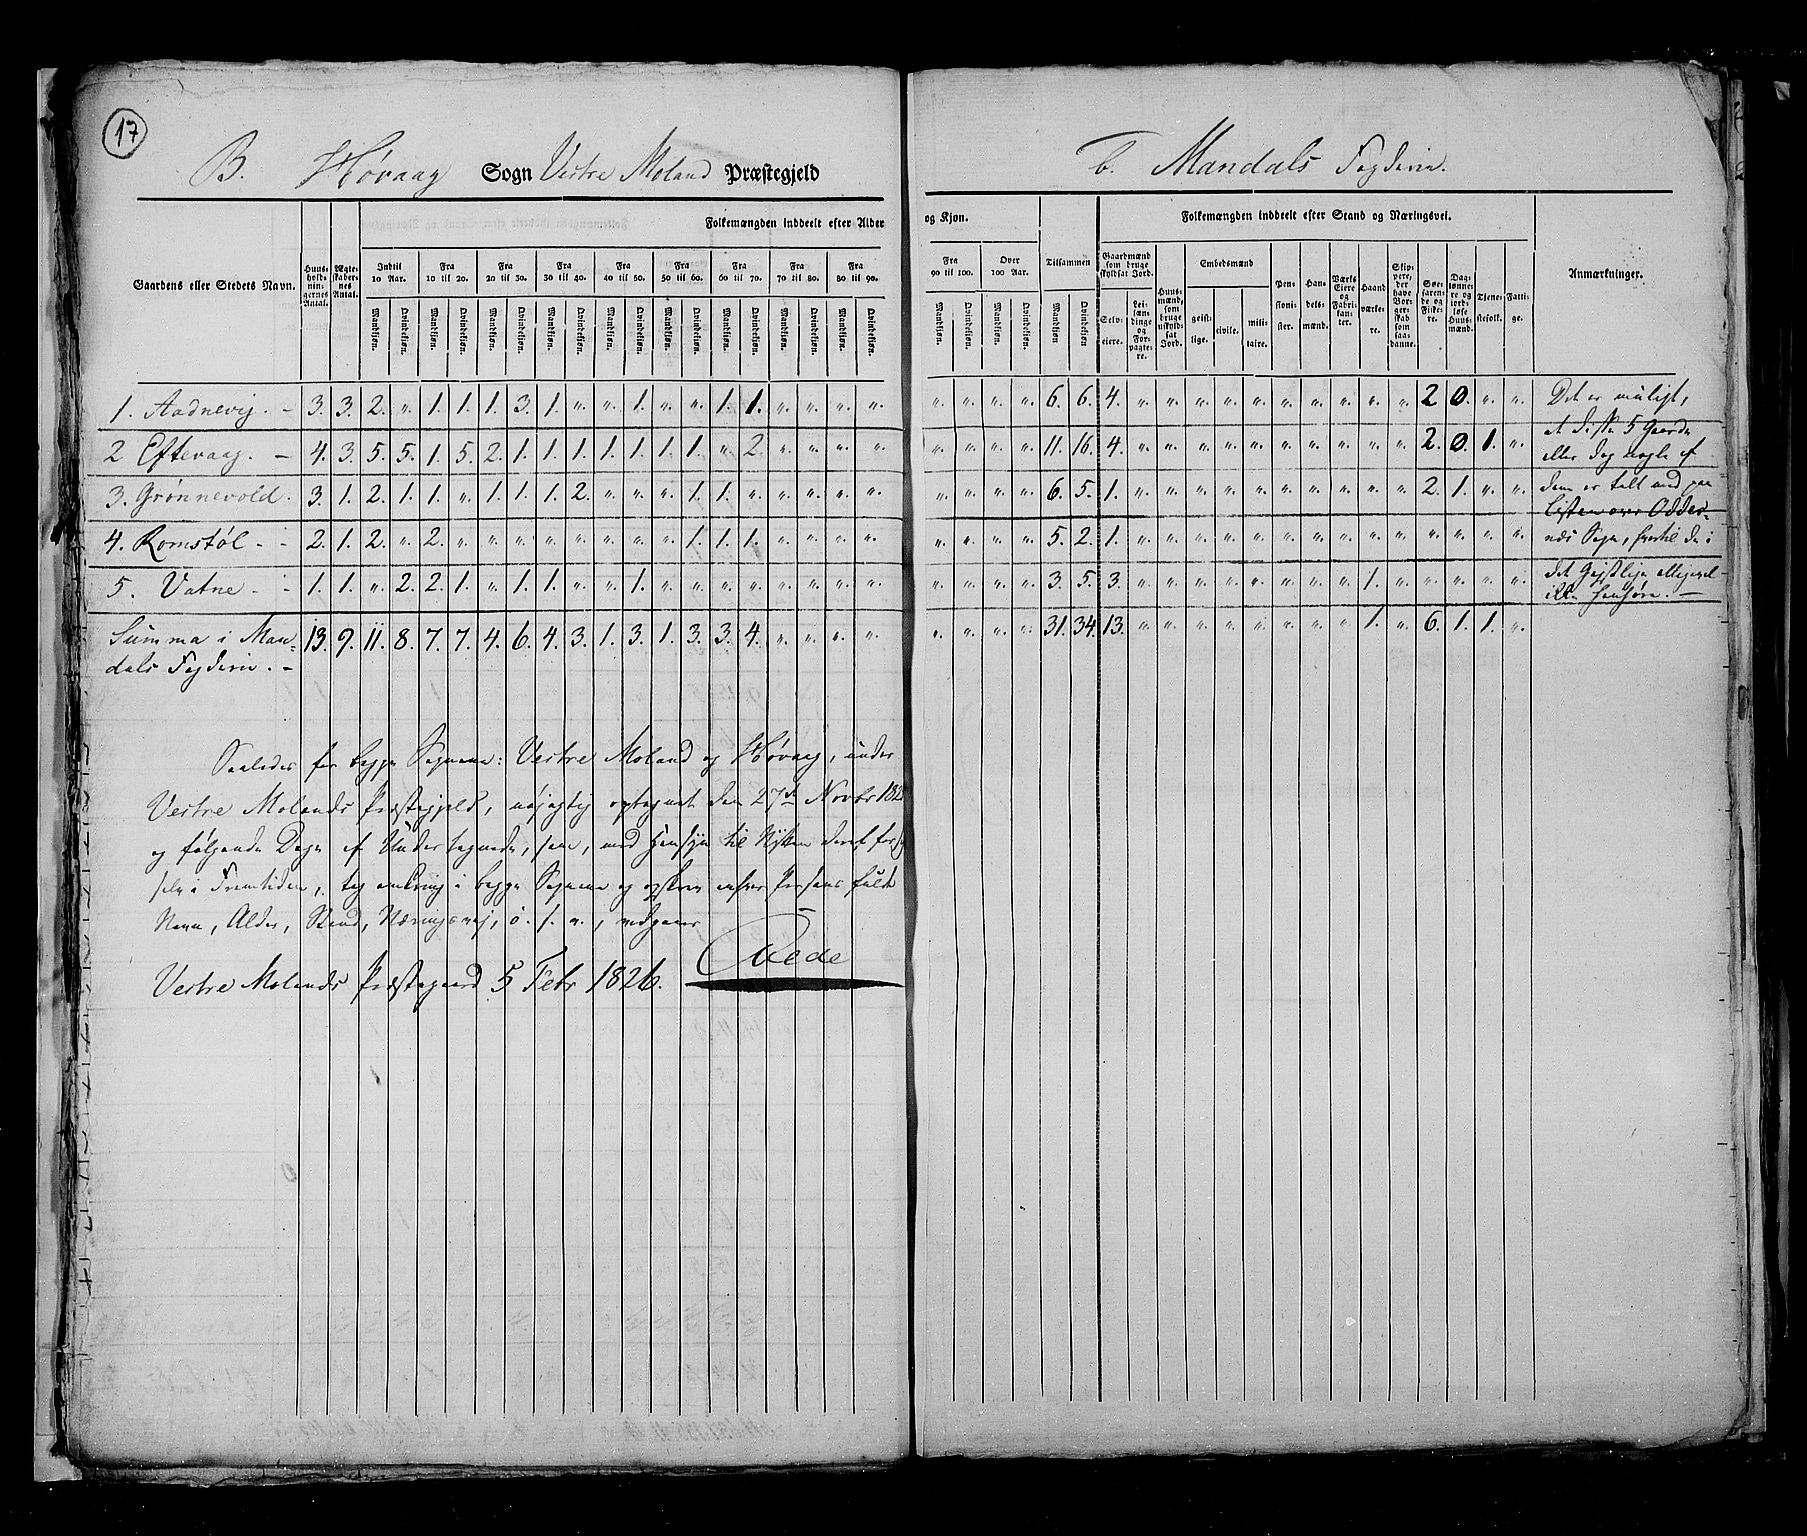 17
B. Høvaag Sogn Vestre Moland Præstegjeld
b. Mandals Fogderie.
Gaardens eller Stedets Navn. Huusholdningernes Antal. Ægteskabernes Antal. Folkemængden inddeelt efter Alder
og Kjøn. Tilsammen Folkemængden inddeelt efter Stand og Næringsvei. Anmærkninger.
Indtil 10 Aar. Fra 10 til 20. Fra 20 til 30. Fra 30 til 40. Fra 40 til 50. Fra 50 til 60. Fra 60 til 70. Fra 70 til 80. Fra 80 til 90.
Fra 90 til 100. Over 100 Aar. Gaardmænd som bruge skyldsat Jord. Huusmænd, som bruge uskyldsat Jord. Embedsmænd Pensionister. Handelsmænd. Værks Eiere og Fabrikanter. Haandværkere. Skippere, der have Borgerskab som saadanne. Søefarende og Fiskere. Daglønnere og jordløse Huusmænd. Tjenestefolk. Fattige.
Mandkjøn. Qvindekjøn. Mandkjøn. Qvindekjøn. Mandkjøn. Qvindekjøn. Mandkjøn. Qvindekjøn. Mandkjøn. Qvindekjøn. Mandkjøn. Qvindekjøn. Mandkjøn. Qvindekjøn. Mandkjøn. Qvindekjøn. Mandkjøn. Qvindekjøn.
Mandkjøn. Qvindekjøn. Mandkjøn. Qvindekjøn. Mandkjøn Qvindekjøn Selveiere. Leilændinge og Forpagtere. geistlige. civile. militaire.
1. Aadnevig. - 3. 3. 2. " 1. 1. 1. 3. 1. " " 1. " " 1. 1. " " " "
" " " " 6. 6. 4. " " " " " " " " " " 2 0. " " Det er muligt,
2 Eftevaag. - 4. 3. 5. 5. 1. 5. 2. 1. 1. 1. 1. 1. 1. 1. " 2. " " " "
" " " " 11. 16. 4. " " " " " " " " " " 2. 0 1. " at disse 5 Gaarde
eller dog nogle af
3. Grønnevold. 3. 1. 2. 1. 1. " 1. 1. 1. 2. " " " 1. 1. " " " " "
" " " " 6. 5. 1. " " " " " " " " " " 2. 1. " " dem er talt med paa
Listen over Odder-
4. Romstøl. - - 2. 1. 2. " 2. " " " " " " " " 1. 1. 1. " " " "
" " " " 5. 2. 1. " " " " " " " " " " " " " " næs Sogn, hvortil de i
5. Vatne. - - 1. 1. " 2. 2. 1. " 1. 1. " " 1. " " " " " " " "
" " " " 3. 5. 3. " " " " " " " " 1. " " " " " det Gejstlige alligevel
ikke henhøre. -
Summa i Man- 13. 9. 11. 8. 7. 7. 4. 6. 4. 3. 1. 3. 1. 3. 3. 4. " " " "
" " " " 31. 34. 13. " " " " " " " " 1. " 6. 1. 1. "
dals Fogderie. -
Saaledes for begge Sognene: Vestre Moland og Høvaag, under
Vestre Molands Præstegjeld, nøjagtig optaget den 27de Novbr 182
og følgende Dage af Undersegnede, som, med Hensyn til Nytten deraf for
selv i Fremtiden, tog omkring i begge Sognene og opskrev enhver Persons fulde
Navn, Alder, Stand, Næringsvej, o. s. v., vedgaaer
Vestre Molands Præstegaard 5 Febr 1826.